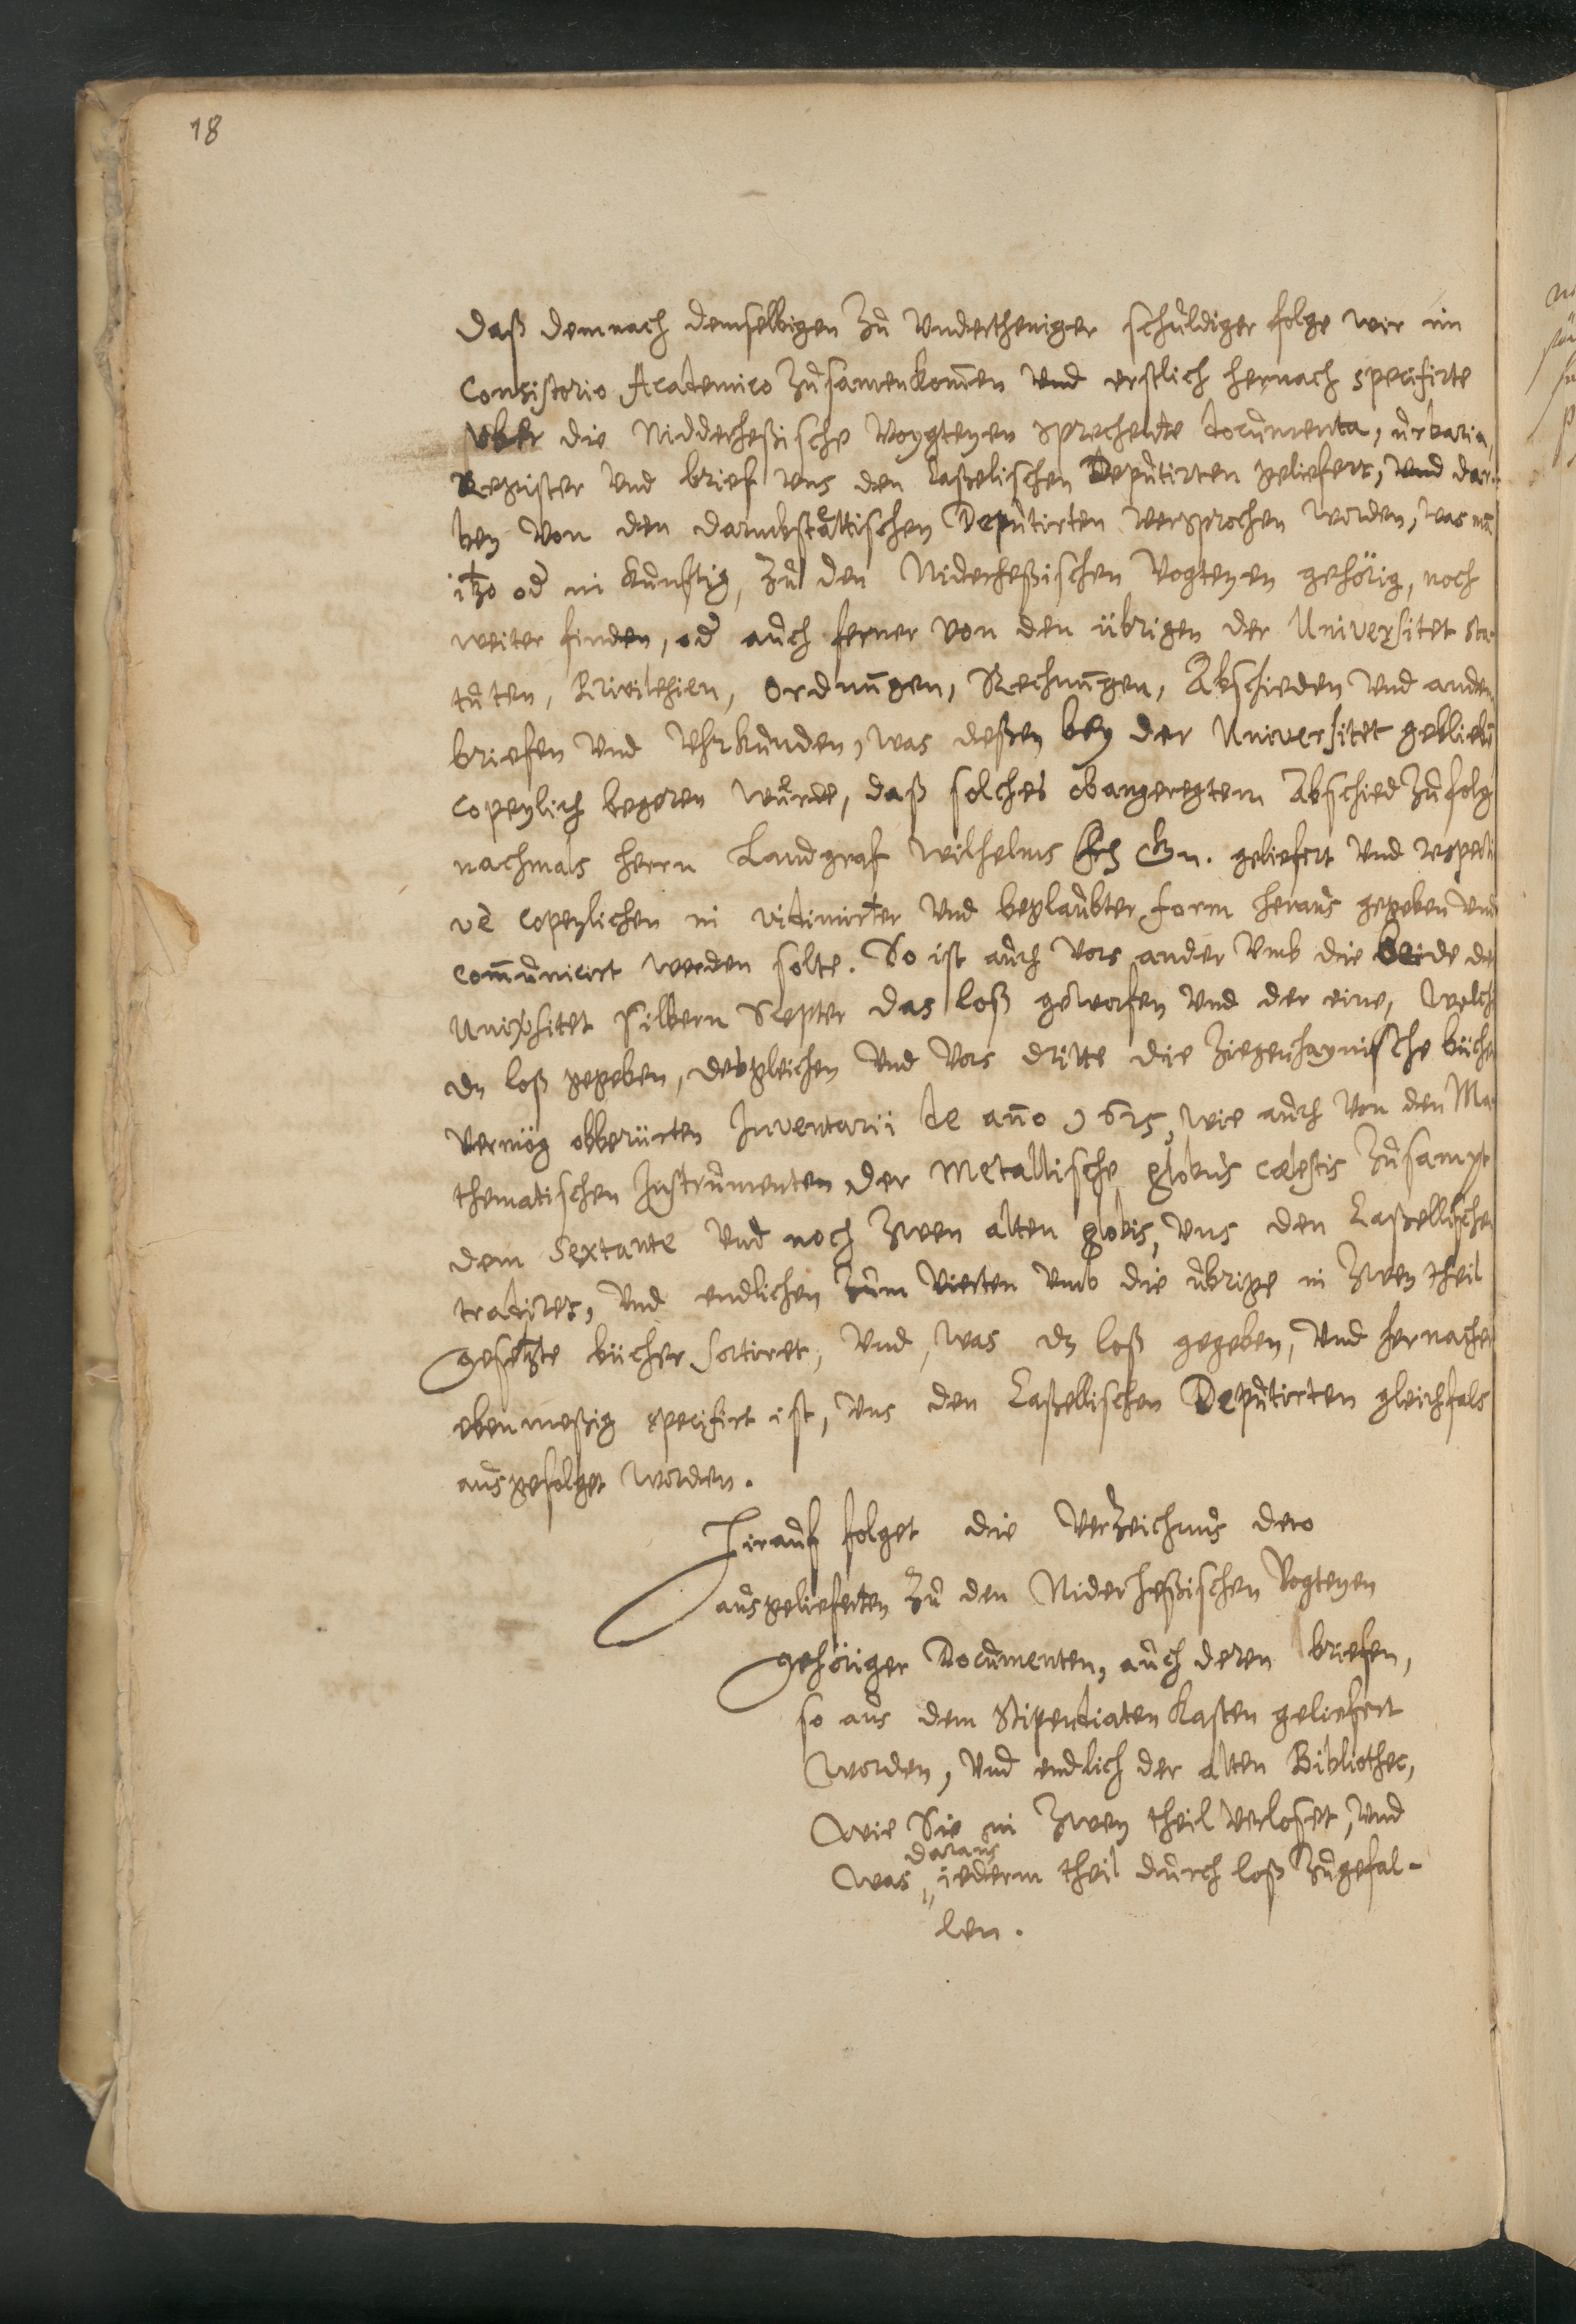 18
daß demnach demselbigen zu undertheniger schuldiger folge wir im
Consistorio Academico zusamenkomen und erstlich hernach specifirte
uber die Nidderheßische Voygteyen sprechente documenta, urbaria,
Register und brief uns den Caßelischen Deputirten geliefert, und dar-
bey von den darmbstättischen Deputirten versprochen worden, was man
itzo od in kunftig, zu den Niderheßischen Vogteyen gehörig, noch
weiter finden, od auch ferner von den übrigen der Universitet Sta-
tuten, Privilegien, Ordnungen, Rechnungen, Abschieden und andern
briefen und Uhrkunden, was deßen bey der Universitet gebliebn
Copeylich begeren wurde, daß solches obangeregtem Abschied zufolg
nachmals herrn Landgraf Wilhelms F G Gn. geliefert und respecti
ve Copeylichen in vidimirter und beglaubter form heraus gegeben und
communicirt werden solte. So ist auch vors ander umb die beide der
Universitet silbern Scepter das loß geworfen und der eine, welch
dz loß gegeben, desgleichen und vors dritte die Ziegenhaynische bücher
vermög obberürten Inventarii de anno 1625, wie auch von den Ma-
thematischen Instrumenten der Metallische globus cælestis zusampt
dem Sextante und noch zwen alten globis, uns den Caßellischen
tradiret, und endlichen zum vierten umb die ubrige in zwey theil
gesetzte bücher sortiret, und, was dz loß gegeben, und hernacher
ebenmeßig specifirt ist, uns den Caßellischen Deputirten gleichfals
ausgefolget worden.
Hirauf folget die Verzeichnus dero
ausgelieferten zu den Niderheßischen Vogteyen
gehöriger Documenten, auch deren briefen,
so aus dem Stipendiaten Kasten geliefert
worden, und endlich der alten Bibliothec,
wie Sie in zwey theil verloset, und
daraus
was iederm theil durch loß zugefal-
len.